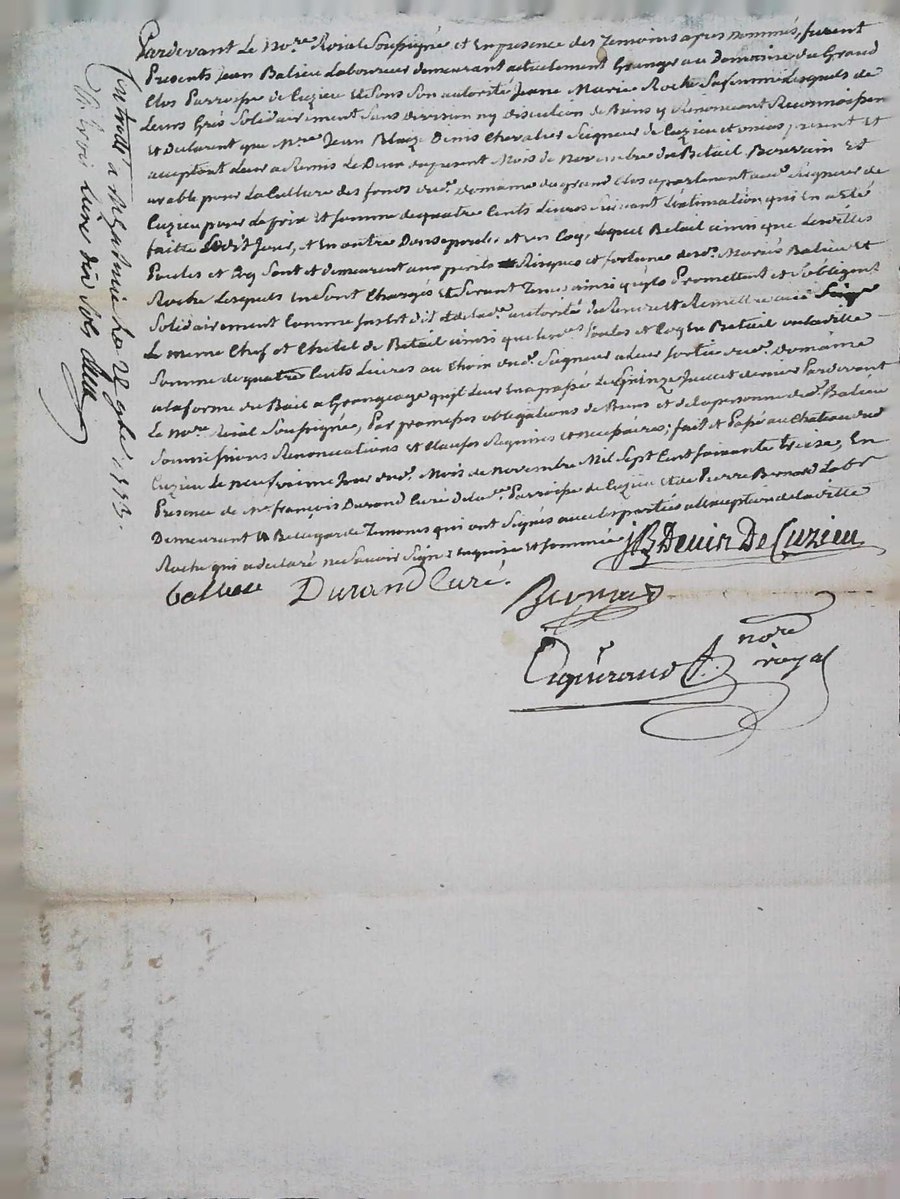 Pardevant Le no.re Roial Soussigné et En presence des Temoins apres nommés, furent
Presents Jean Balieu Laboureur demeurant actuelement Granger au Domaine du Grand
Clos Parroisse de Cuzieu et Sous Son autorité Jeane Marie Roche Sa femme Lesquels de
Leurs Grés Solidairement Sans division ny discution de Biens y Renonceant Reconnoissen
et declarent que M.re Jean Denis Chevalier Seigneur de Cuzieu et present et
aceptant Leur a Remis Le Deux du present Mois de novembre du Betail Bouvain et
arable pour La Culture des fonds dud. domaine du grand Clos apartenant aud. Seigneur de
Cuzieu pour Le prix et Somme de quatre Cents Livres Suivant L'estimation qui En a eté
faitte Ledit Jour, et En outre et un Coq, Lequel Betail ainsi que Lesdittes
Poules et Coq Sont et demeurent aux perils Risques et fortune desd. Mariés Balieu et
Roche Lesquels En Sont Chargés et ainsi qu'ils Promettent et S'obligent
Solidairement Comme Sus est dit et de lad. autorité de Rendre et Remettre aud. Seigr
Le meme Chef et Chetel de Betail ainsi que Les Poules et Coq En Betail ou laditte
Somme de quatre Cents Livres au Choix dud. Seigneur a Leur Sortie dud. domaine
a la forme du Bail a Grangeage qu'il Leur En a passé Le Quinze Juillet dernier Pardevant
Le no.re Roial Soussigné, Par promesses obligations de Biens et de la personne dud. Balieu
Soumissions Renonciations et Clauses Requises et necessaires; fait et Passé au Chateau dud
Cuzieu Le neufvieme Jour dud. Mois de novembre Mil Sept Cent Soixante treize, En
Presence de M.re François Durand Curé de lad. Parroisse de Cuzieu et de Pierre Bernard Labr
Demeurant a Bellegarde Temoins qui ont Signés avec les parties a l'exception de laditte
Roche qui a declaré ne Savoir Signer Enquise et Sommée JB Denis De Cuzieu
balieue Durand Curé.
Bernard
nore
royal
Controllé a le 9bre 1773.
Reçu Livre dix Sols